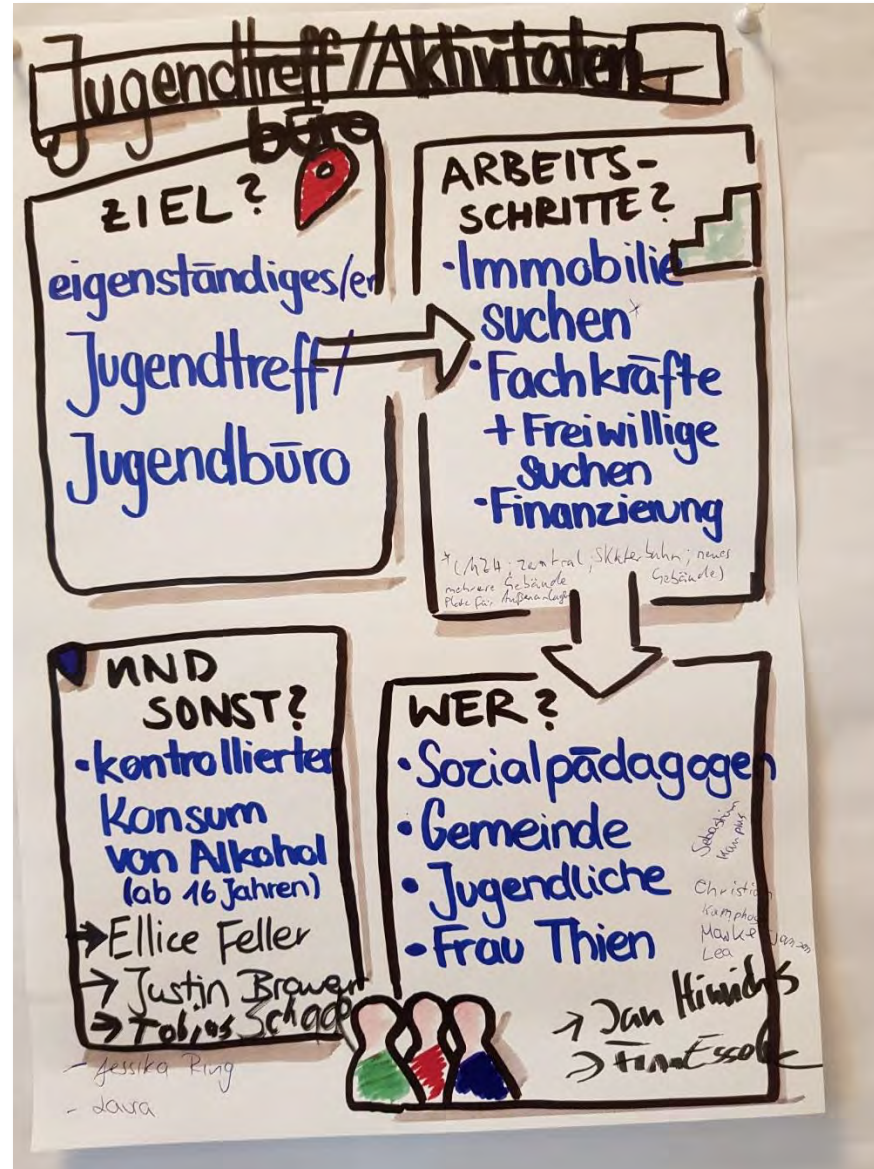 Jugendtreff/Aktivitäten
büro
ZIEL?
eigenständiges/er
Jugendtreff/
Jugendbüro
ARBEITS-
SCHRITTE?
·Immobilie
suchen*
·Fachkräfte
+ Freiwillige
suchen
·Finanzierung
zentral; Skaterbahn; neues
mehrere Gebäude Gebäude)
Platz für Außenanlage
UND
SONST?
·kontrollierter
Konsum
von Alkohol
(ab 16 Jahren)
→Ellice Feller
→ Justin
→ Tobias
- Jessika Ring
- Laura
WER?
·Sozialpädagogen
·Gemeinde
·Jugendliche
·Frau Thien
Sebastian
Christian
Lea
→ Jan Hinrichs